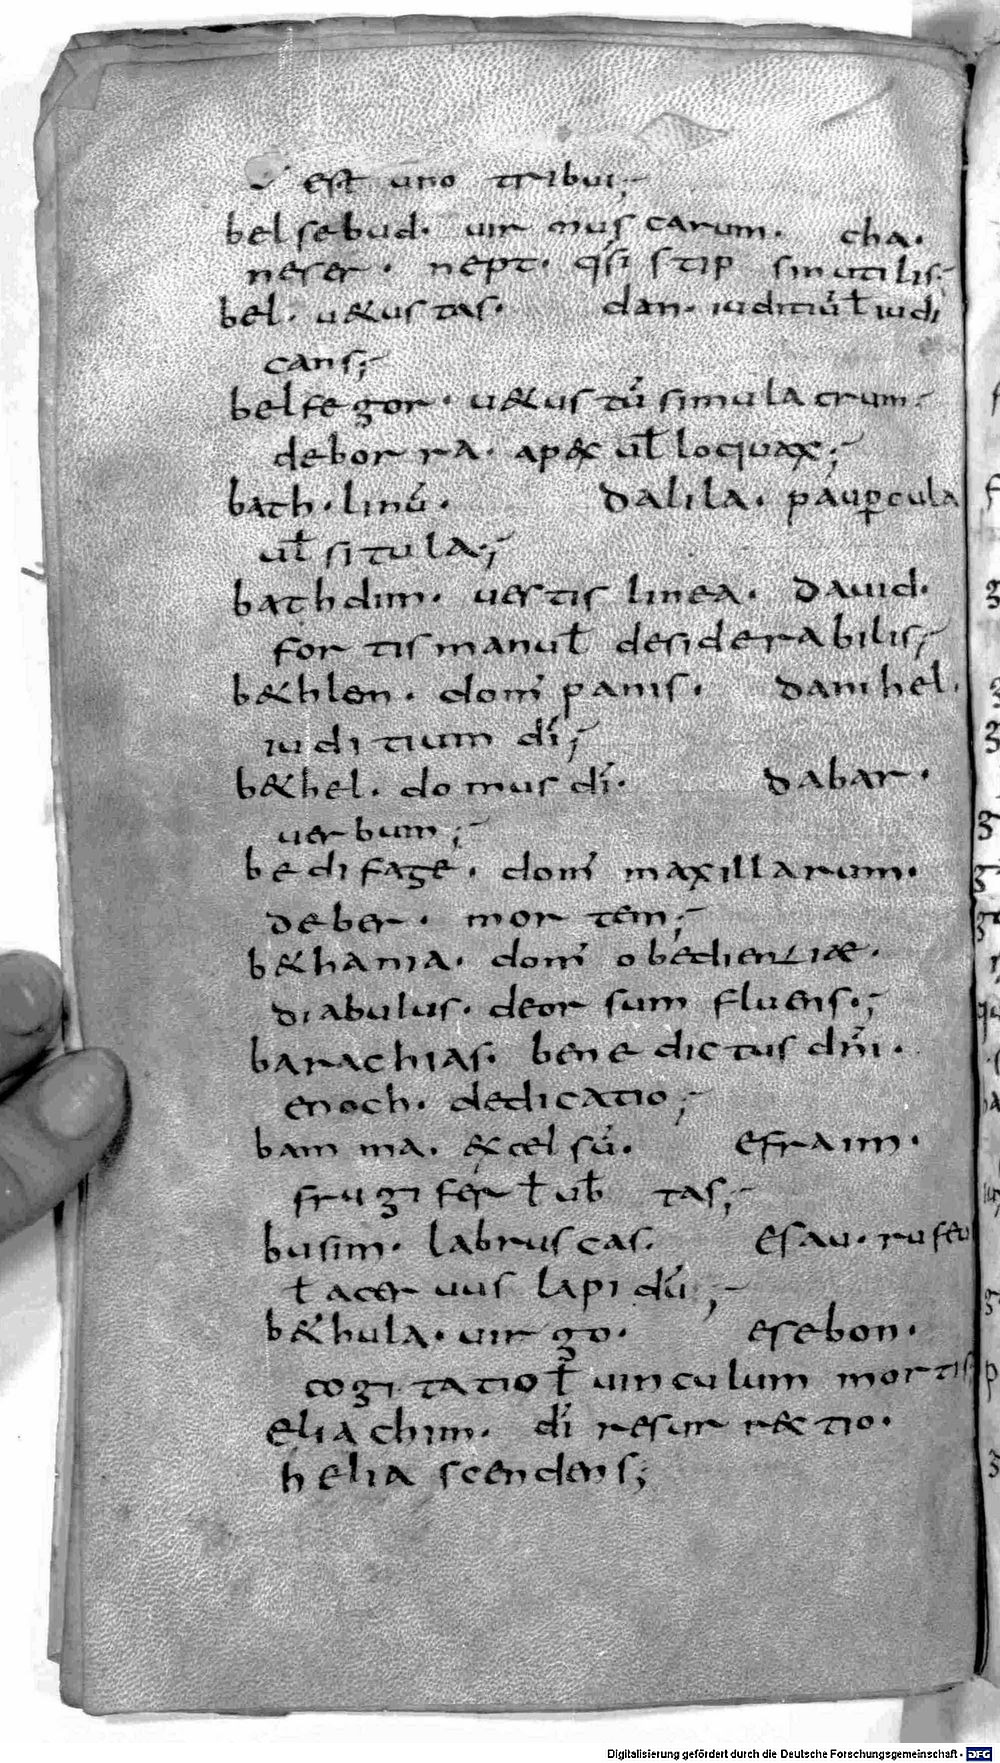 est uno tribui;
belsebud. uir muscarum. cha.
neser. nept. qsi stip sinutilis;
bel. u&ustas. dan. iuditiūł iudi
cans;
belfegor. u&ustū simulacrum.
deborra. ap& uł loquax;
bath. linū. dalila. paup̱cula
uł situla;
bathdim. uestis linea. dauid.
fortis manuł desiderabilis;
b&hlem. dom̄ panis. danihel.
iuditium dī;
b&hel. domus dī. dabar.
uerbum;
bedifage. dom̄ maxillarum.
deber. mortem;
b&hania. dom̄ obedientiae.
diabulus. deorsum fluens;
barachias. benedictus dn̄i.
enoch. dedicatio;
bamma. &celsū. efraim.
frugifer ł ub tas;
busim. labruscas. esau. rufeu
ł aceruus lapidū;
b&hula. uirgo. esebon.
cogitatio ł uinculum mortis
eliachim. dī resurr&tio.
helia scendens;
Digitalisierung gefördert durch die Deutsche Forschungsgemeinschaft - DFG